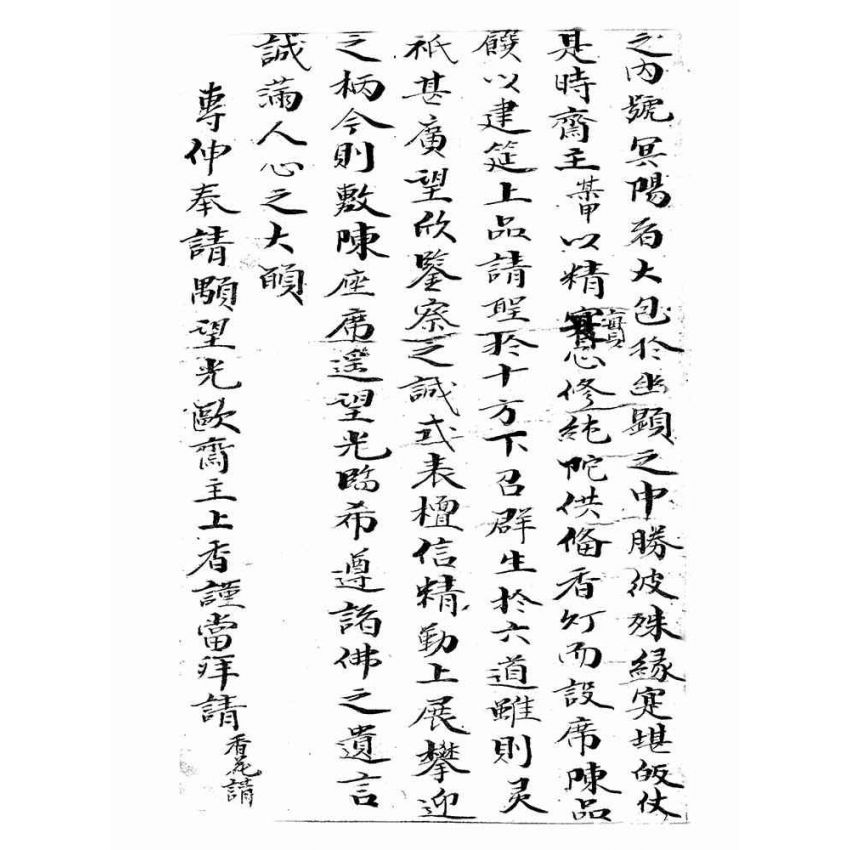 之内號冥陽為大包於幽顯之中勝彼殊緣寔堪皈仗
是時齋主某甲以精實心修純陀供俻香灯而設席陳品
饌以建筵上品請聖於十方下召群生於六道雖則灵
祇甚廣望欣鑒察之誠或表檀信精勤上展攀迎
之柄今則敷陳座席遥望光臨希遵諸佛之遺言
誠滿人心之大願
專伸奉請顒望光歐齋主上香謹當拜請香花請